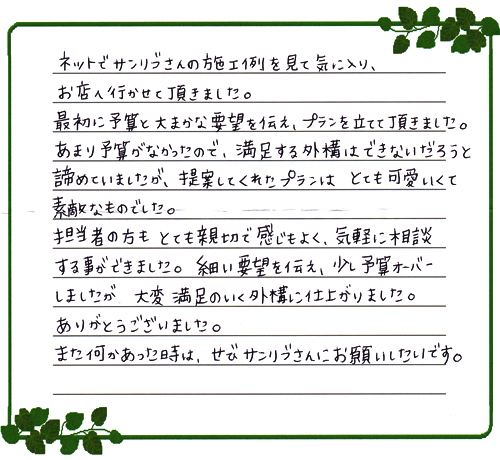 ネットでサンリブさんの施工例を見て気に入り、
お店へ行かせて頂きました。
最初に予算と大まかな要望を伝え、プランを立てて頂きました。
あまり予算がなかったので、満足する外構はできないだろうと
諦めていましたが、提案してくれたプランは とても可愛いくて
素敵なものでした。
担当者の方も とても親切で感じもよく、気軽に相談
する事ができました。細い要望を伝え、少し予算オーバー
しましたが 大変満足のいく外構に仕上がりました。
ありがとうございました。
また何かあった時は、ぜひサンリブさんにお願いしたいです。